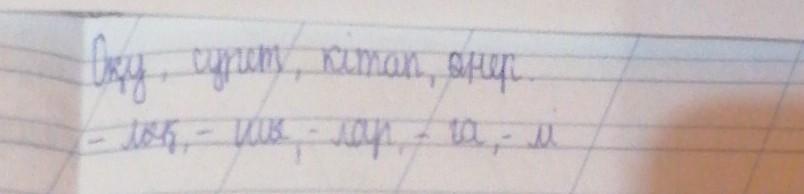 Оқу, сурет, кітап, өнер.
- лық, - шы, - лар, - ға, - м